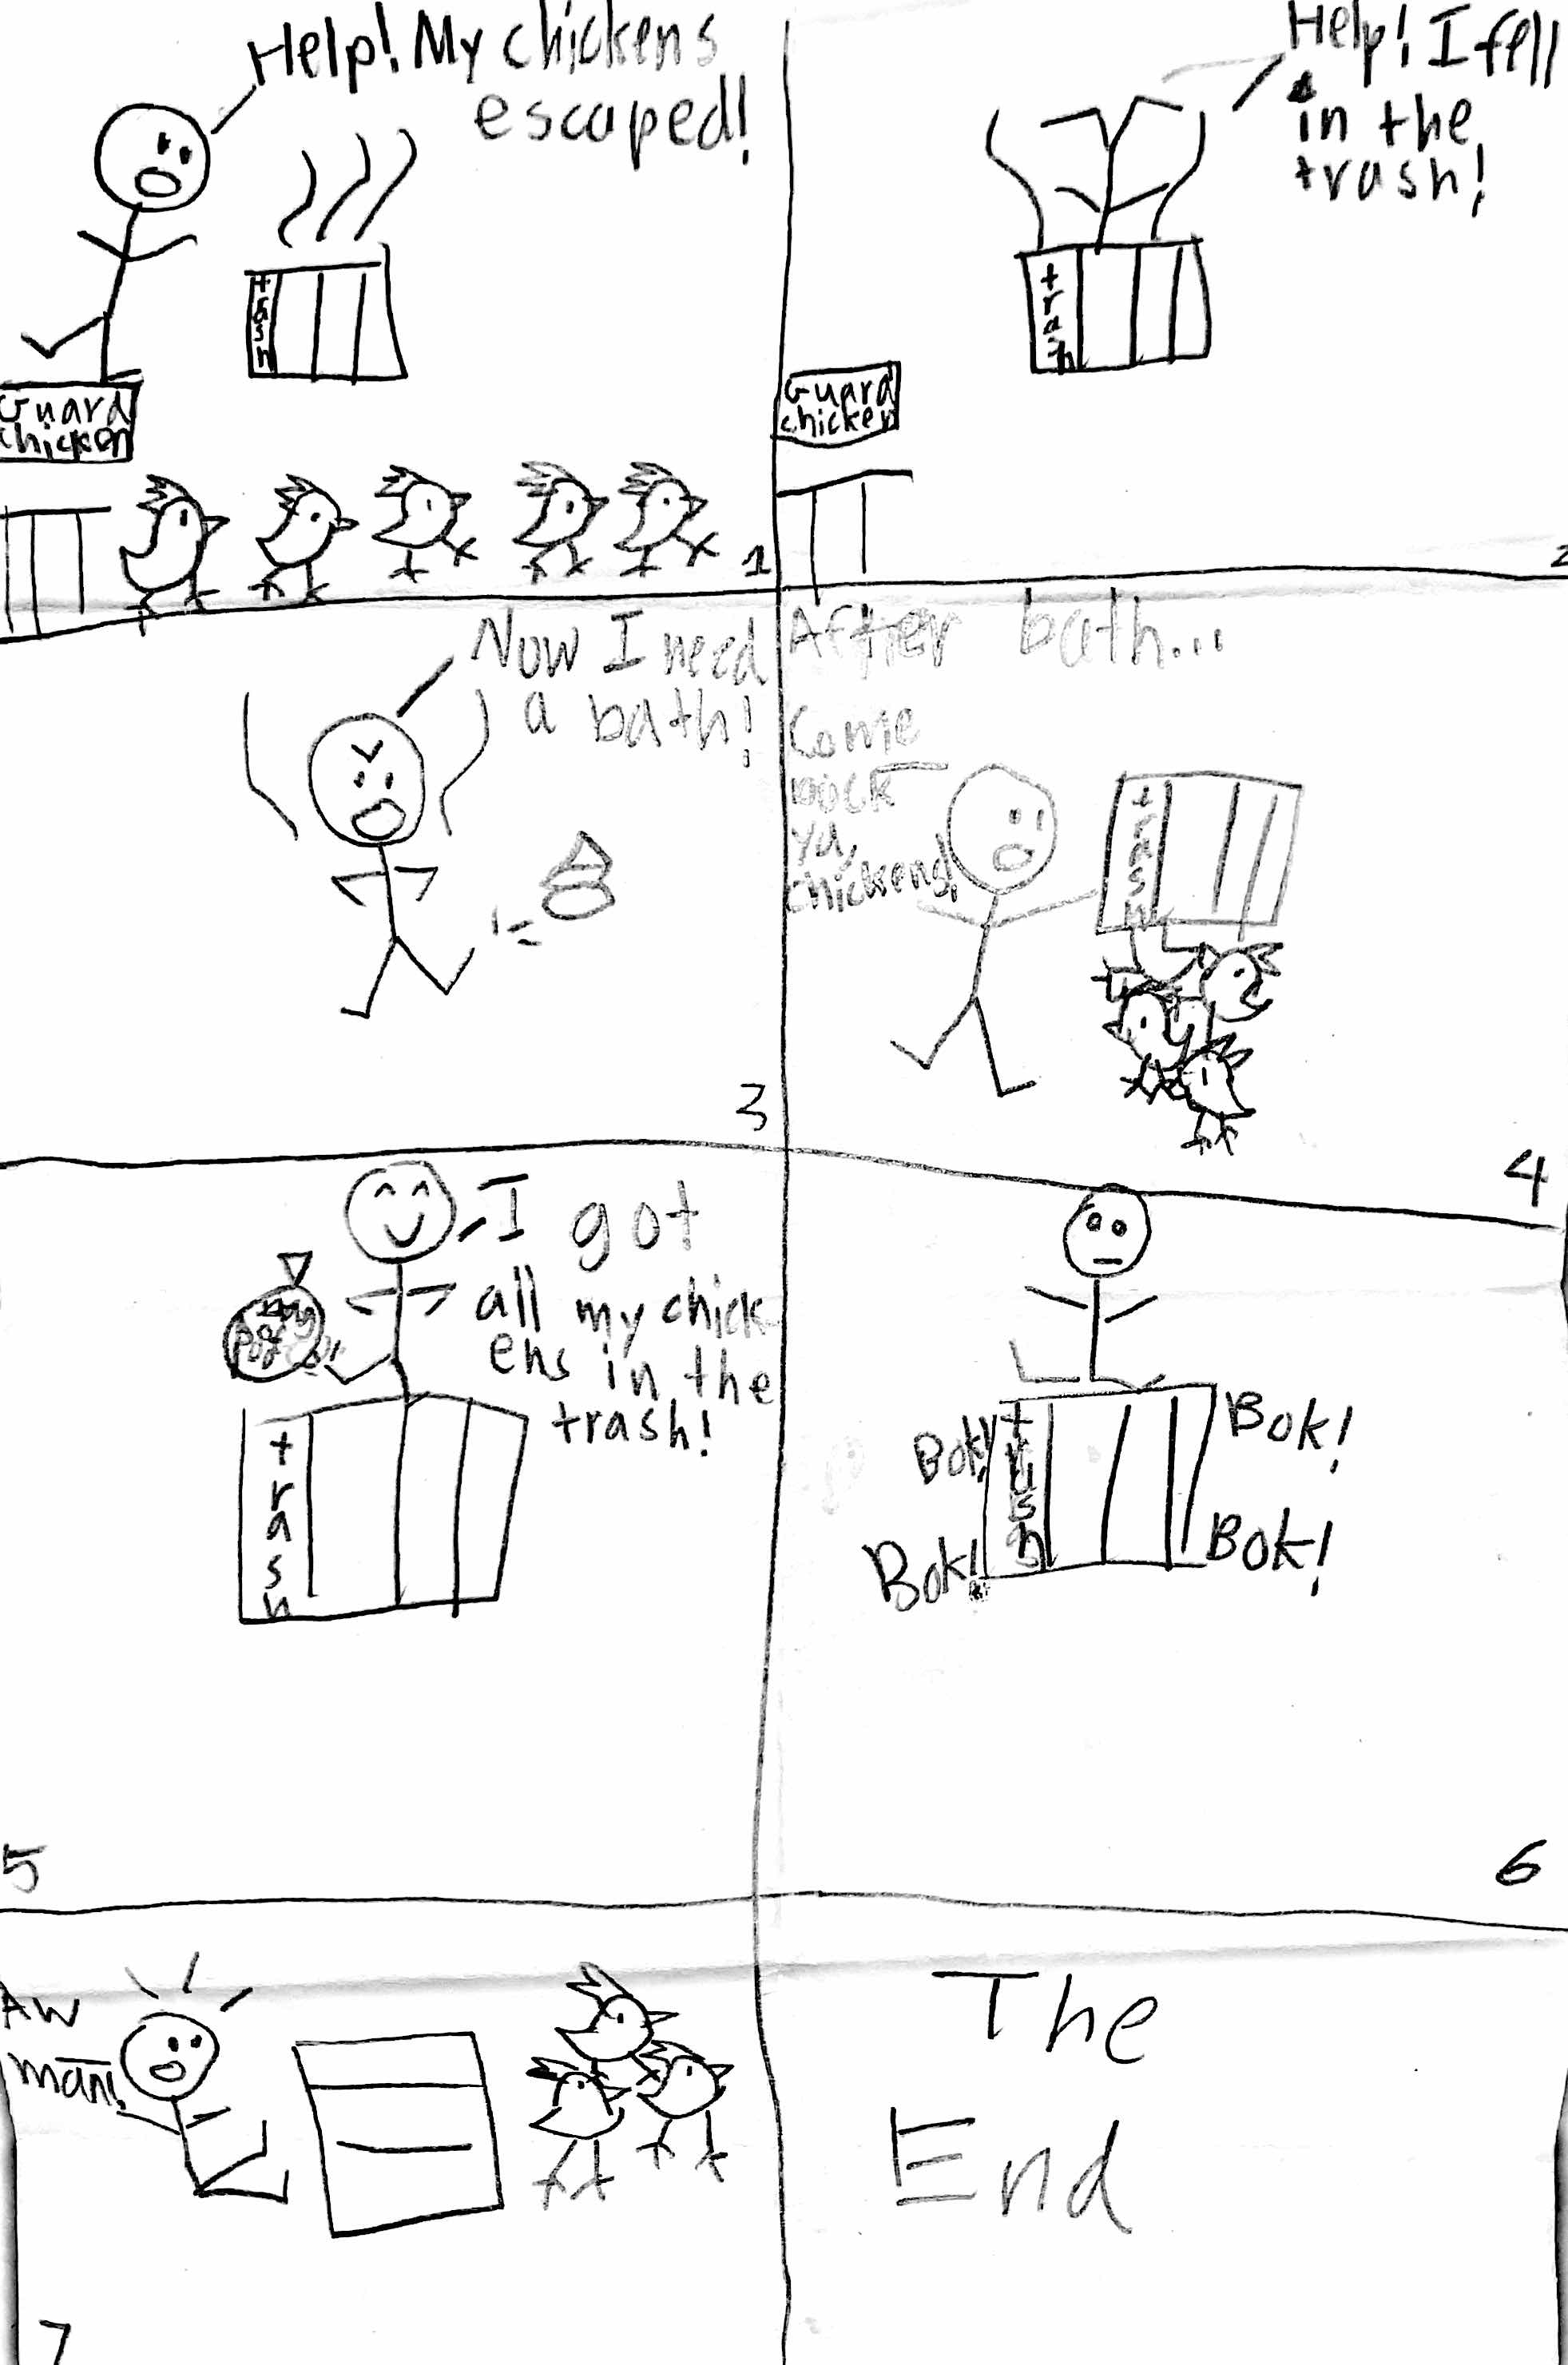 Help! My chickens
escaped!
trash
Guard
chicken
1
Help! I fell
in the
trash!
trash
Guard
chicken
2
Now I need
a bath!
3
After bath...
Come
back
ya,
chickens!
trash
4
I got
all my chick
ens in the
trash!
trash
5
Bok!
Bok!
trash
Bok!
Bok!
6
Aw
man!
7
The
End